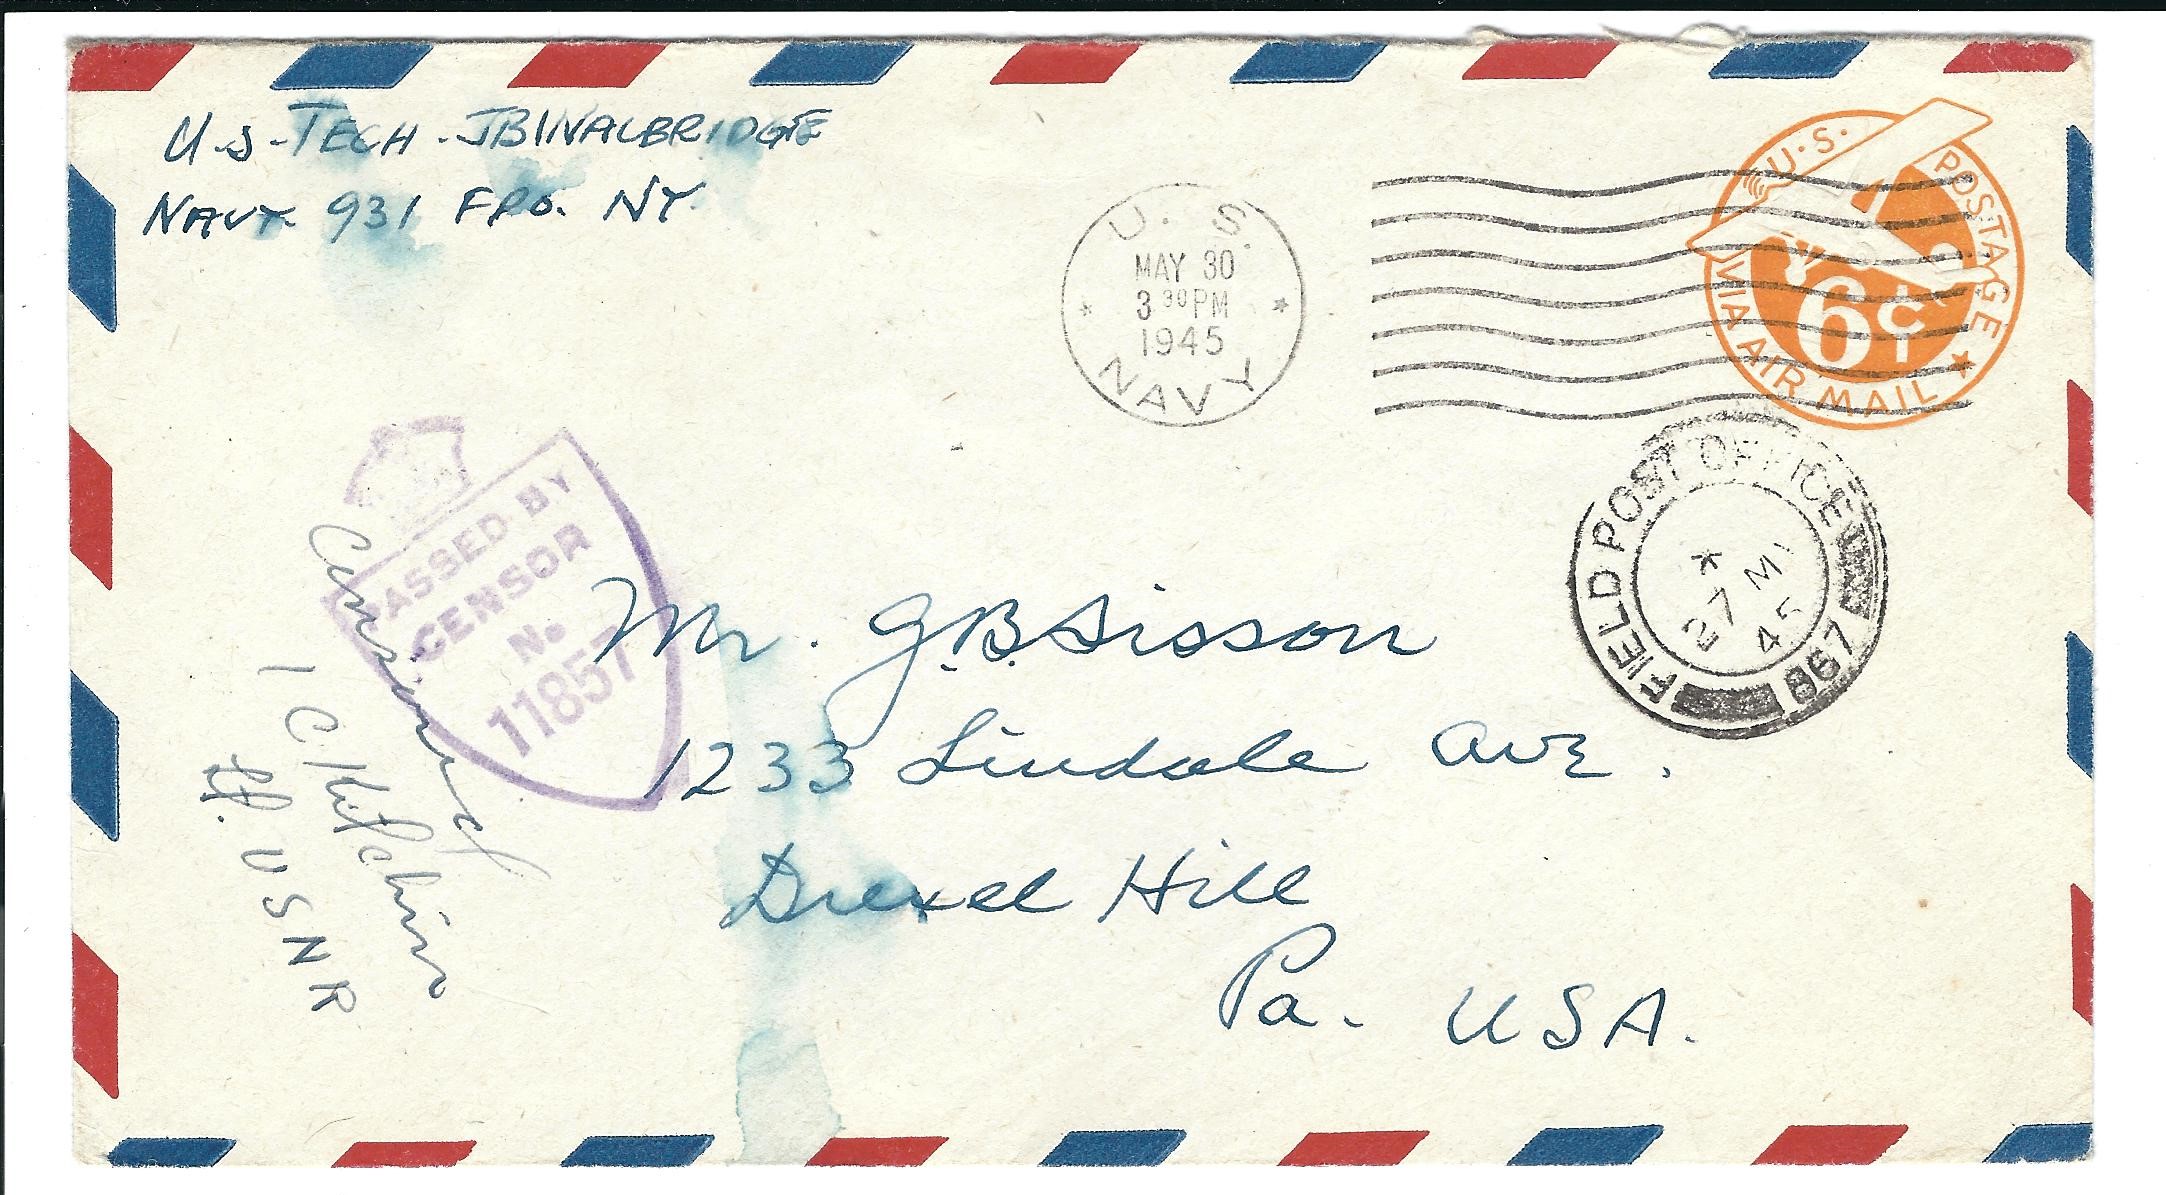 U.S. TECH. JBINALBRIDGE
NAVY 931 FPO. NY.
U. S.
MAY 30
3 30 PM
1945
NAVY
U.S. POSTAGE
6¢
VIA AIR MAIL
FIELD POST OFFICE
27 MY
45
867
PASSED BY
CENSOR
No
11857
Censored
I C Kitchin
Lt. USNR
Mr. G.B. Sisson
1233 Lindale Ave.
Drexel Hill
Pa. USA.